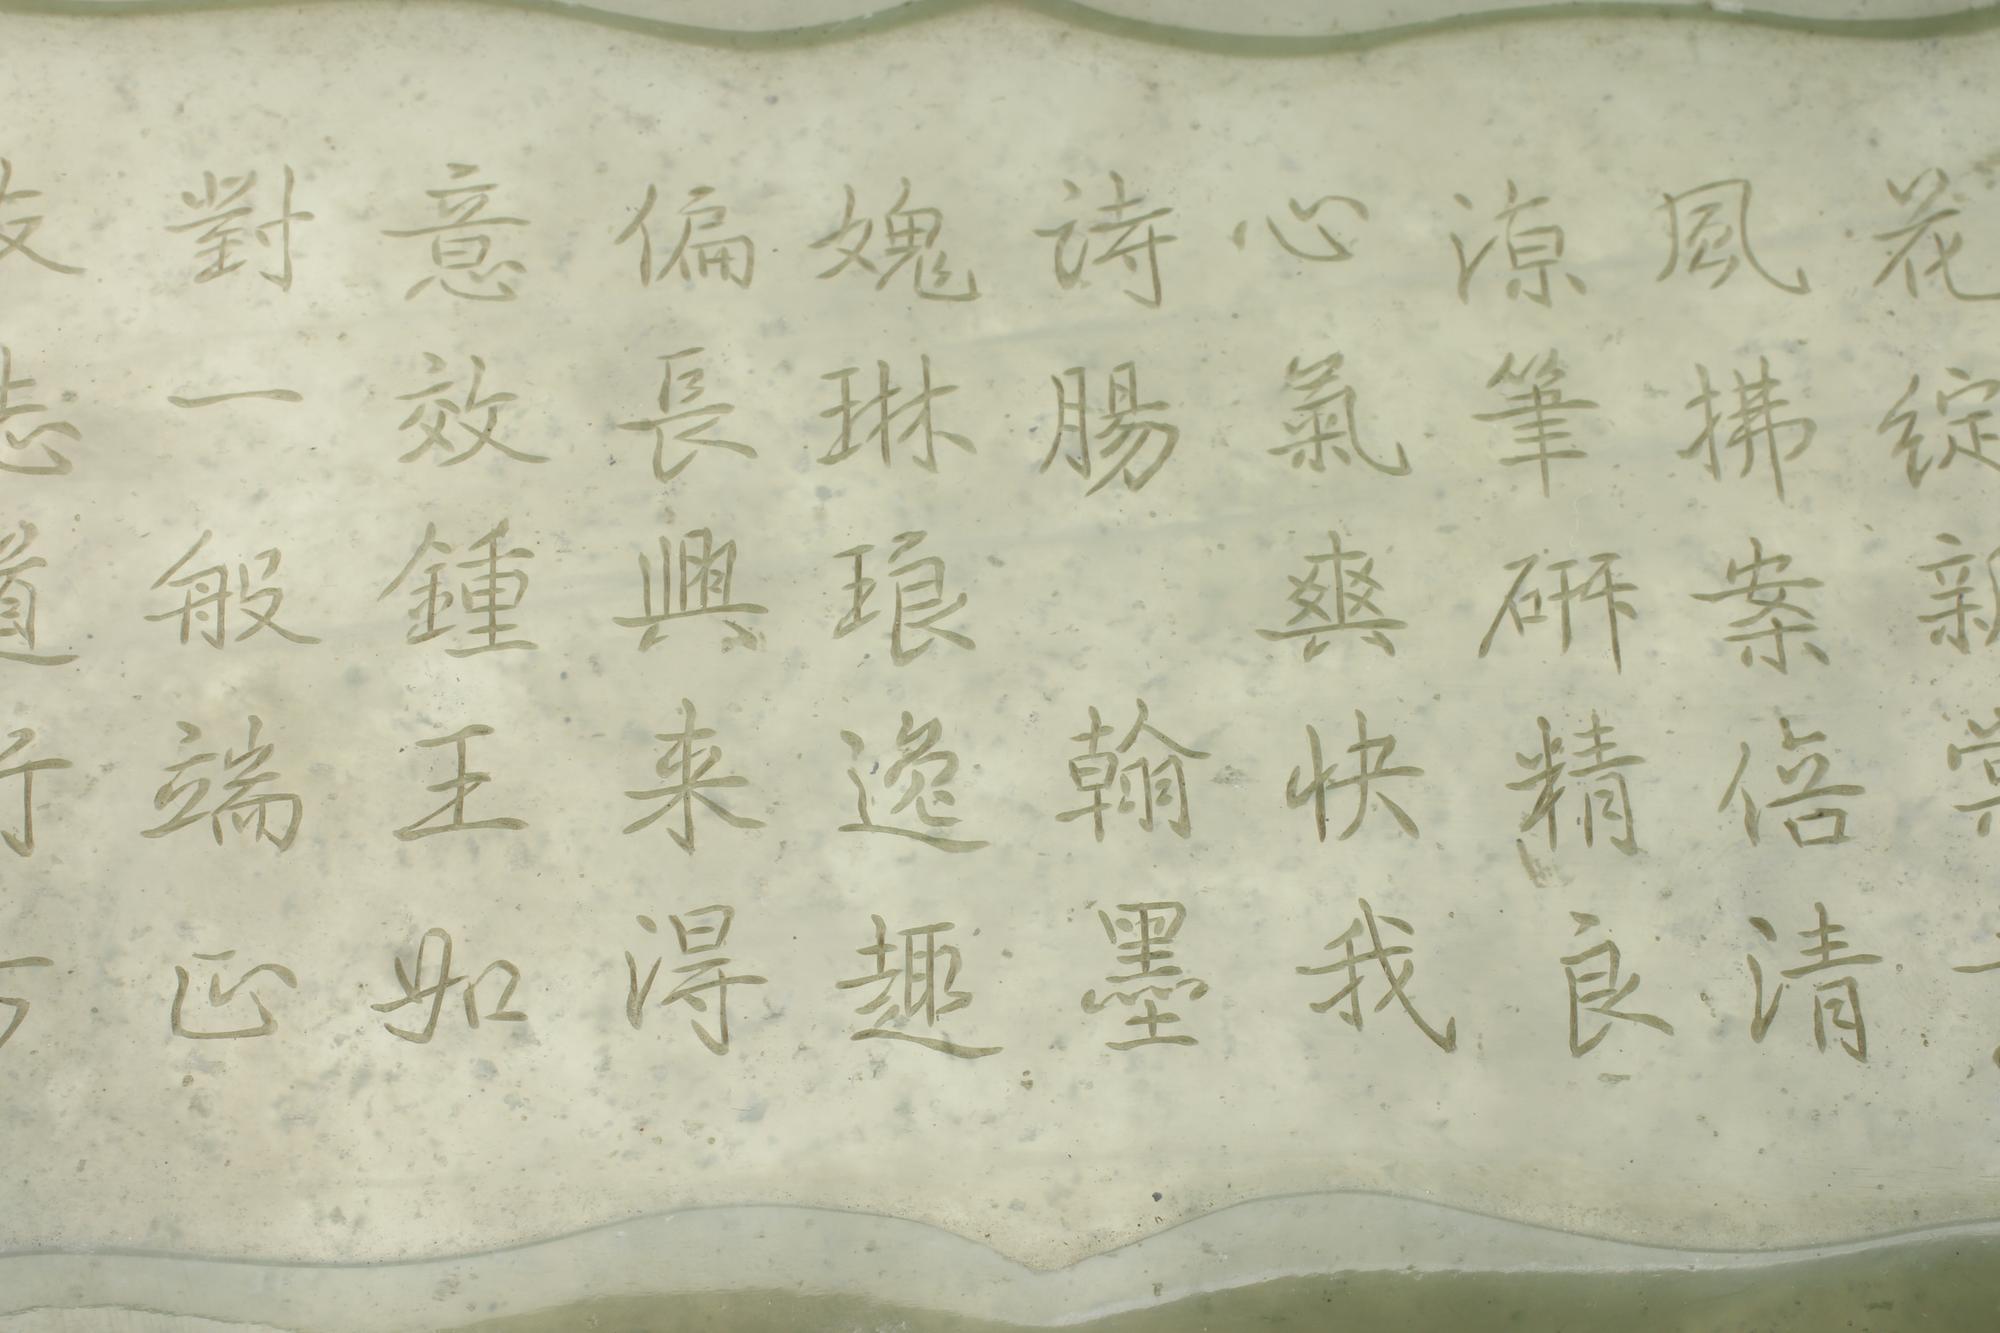 花綻新
風拂案倍清
涼筆研精良
心氣爽快我
詩腸翰墨
媿琳琅逸趣
偏長興来得
意效鍾王如
對一般端正